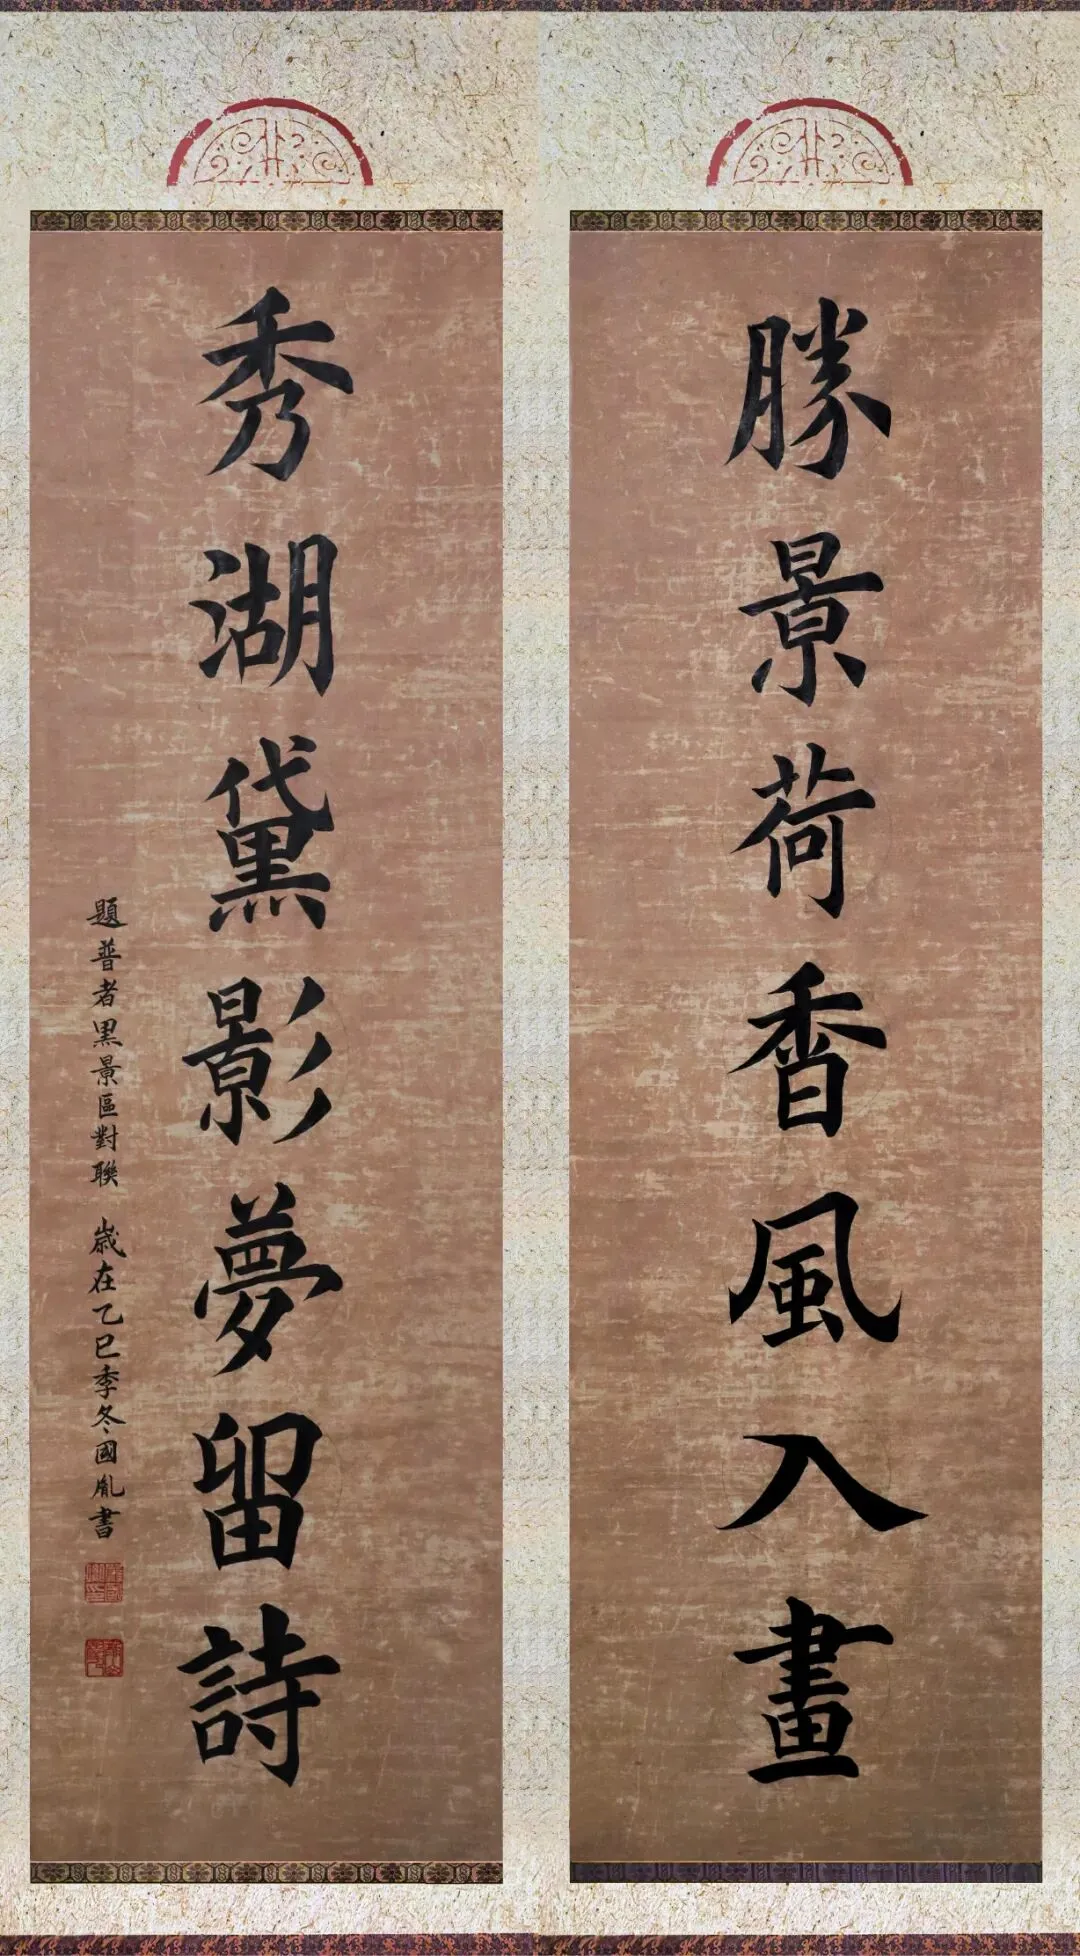 勝景荷香風入畫
秀湖黛影夢留詩
題普者黑景區對聯 歲在乙巳季冬國胤書